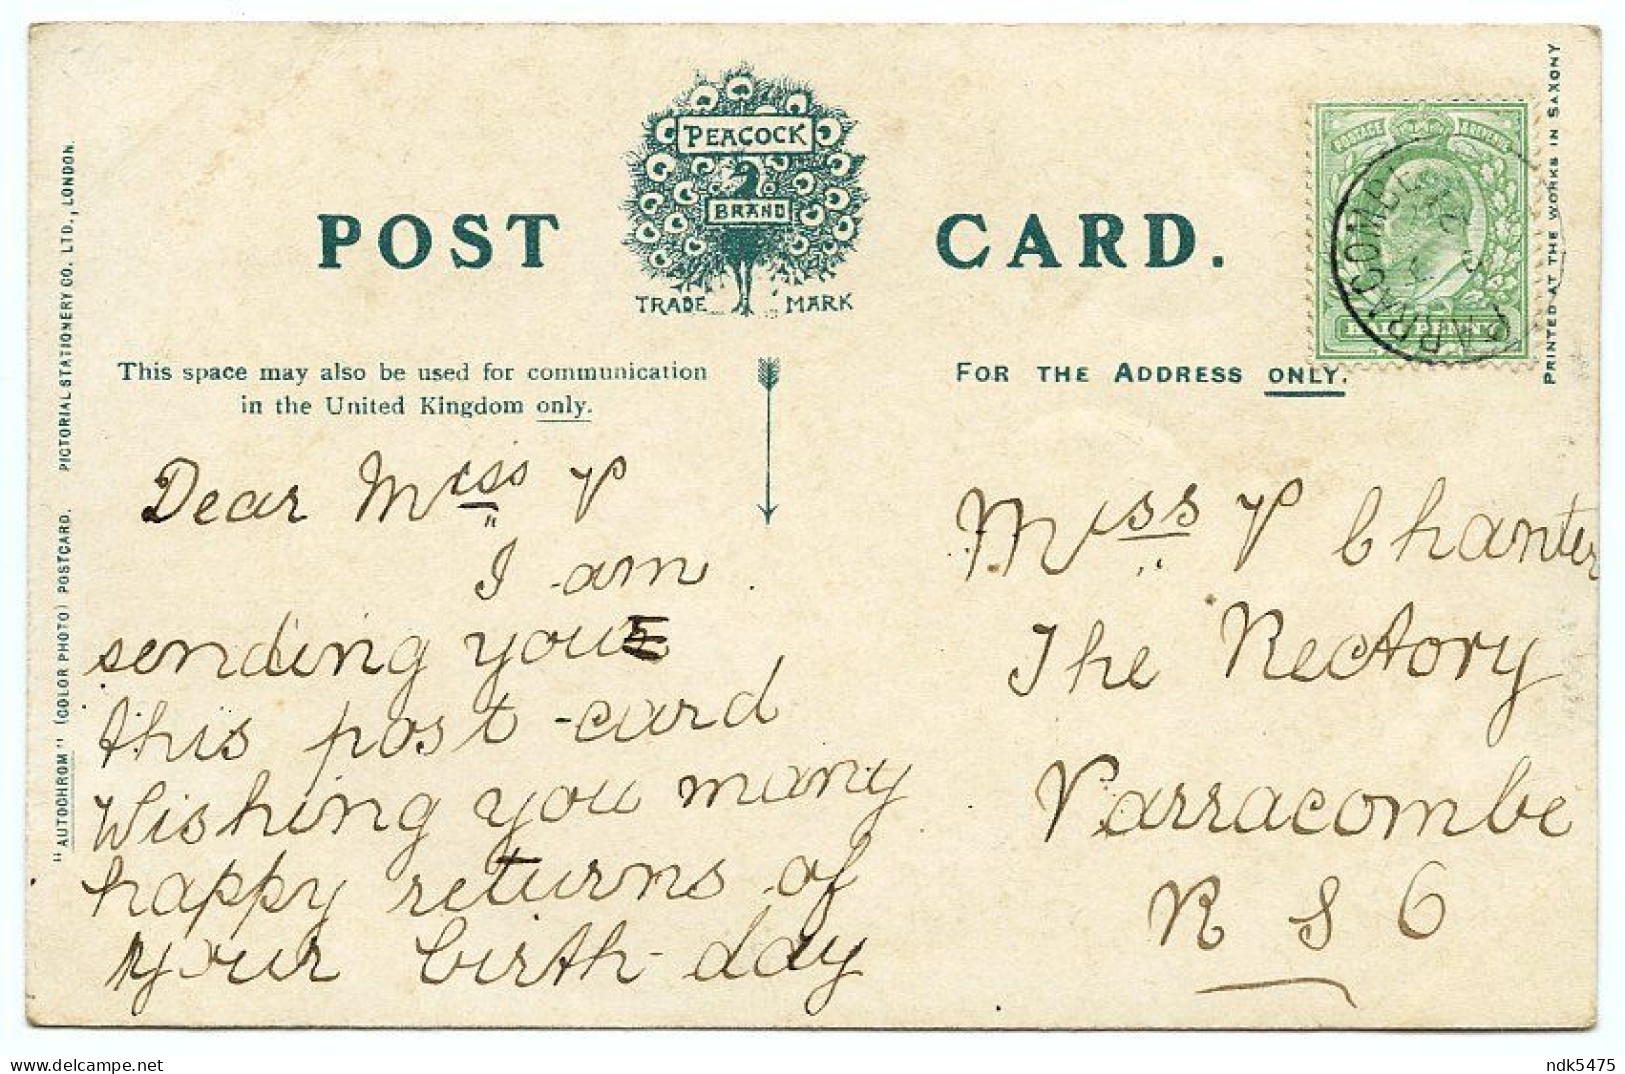 PEACOCK
BRAND
POST CARD.
TRADE MARK
This space may also be used for communication
in the United Kingdom only.
FOR THE ADDRESS ONLY.
"AUTOCHROM" (COLOR PHOTO) POSTCARD. PICTORIAL STATIONERY CO. LTD., LONDON.
PRINTED AT THE WORKS IN SAXONY
POSTAGE & REVENUE
HALF PENNY
PARRACOMBE
Dear Miss P
I am
sending you
this post-card
Wishing you many
happy returns of
your birth-day
Miss P Chanter
The Rectory
Parracombe
R S O
delcampe.net
ndk5475